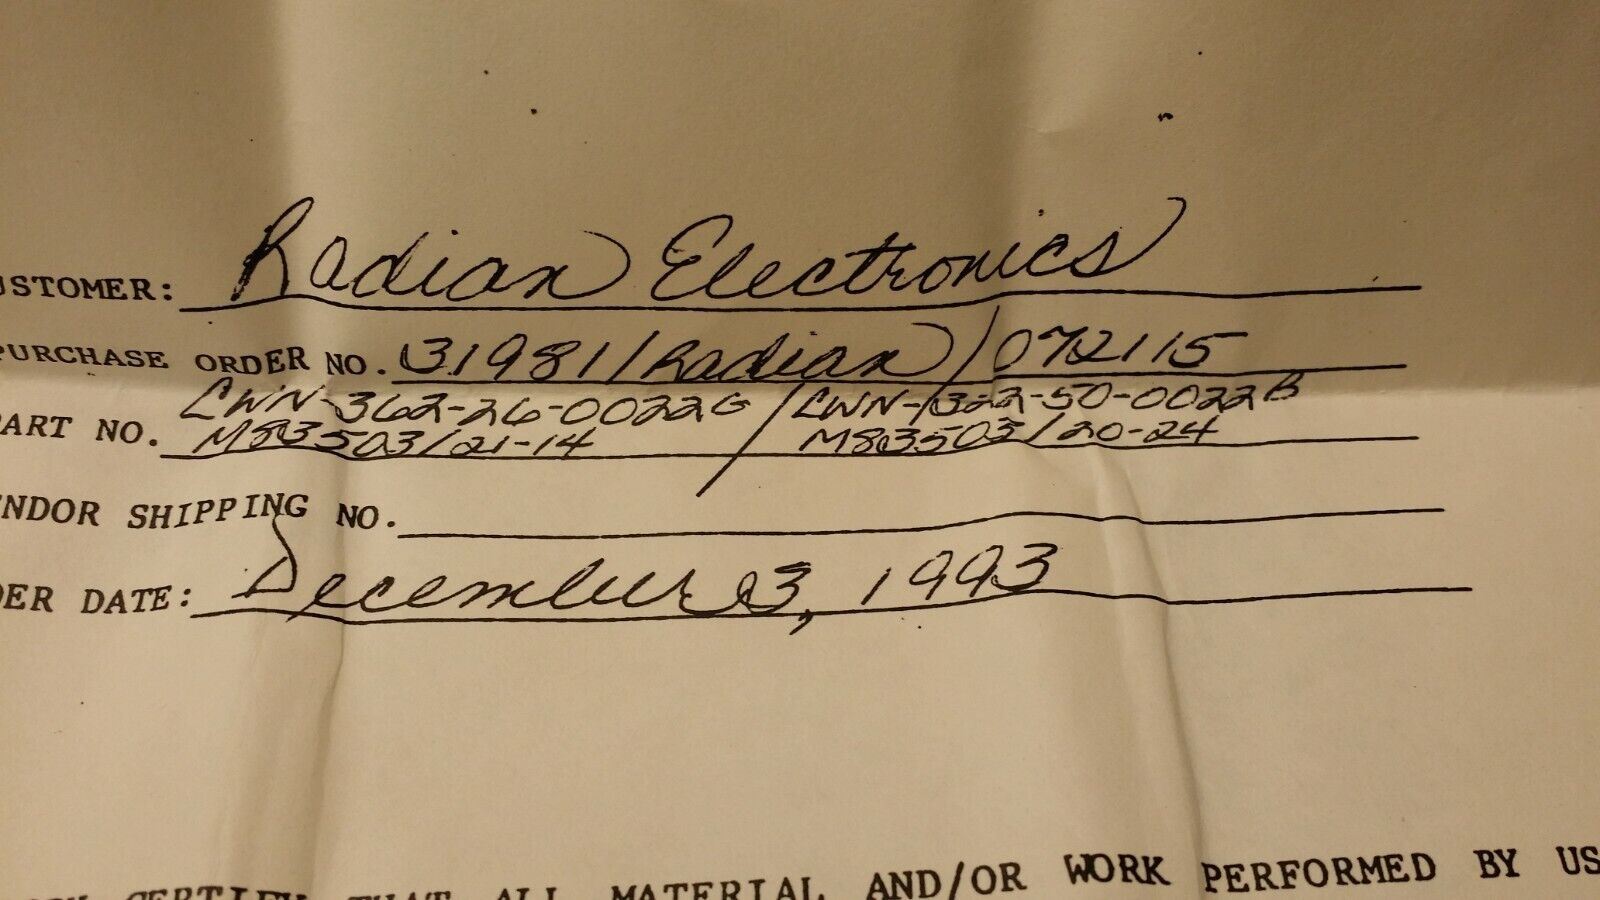 USTOMER: Radian Electronics
PURCHASE ORDER NO. 31981/Radian/072115
LWN-362-26-0022G / LWN-322-50-0022B
ART NO. M83503/21-14 M83503/20-24
ENDOR SHIPPING NO.
DER DATE: December 03, 1993
CERTIFY THAT ALL MATERIAL AND/OR WORK PERFORMED BY US